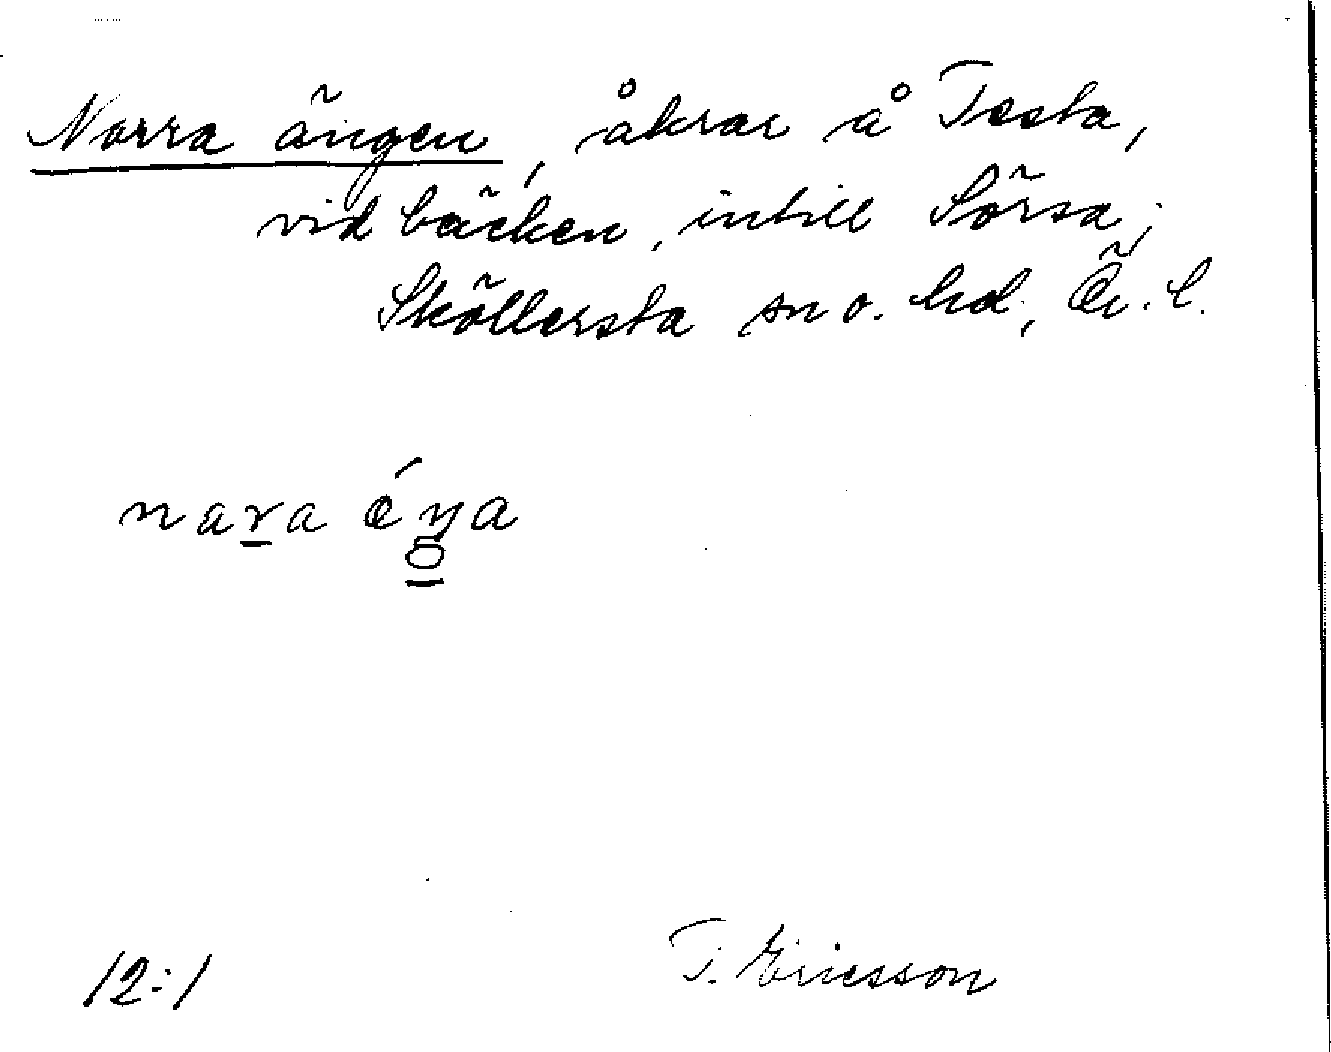 Norra ängen, åkrar å Testa,
vid bäcken, intill Sörsa;
Sköllersta sn o. hd, Ör. l.
nara éŋa
12:1
T. Ericsson